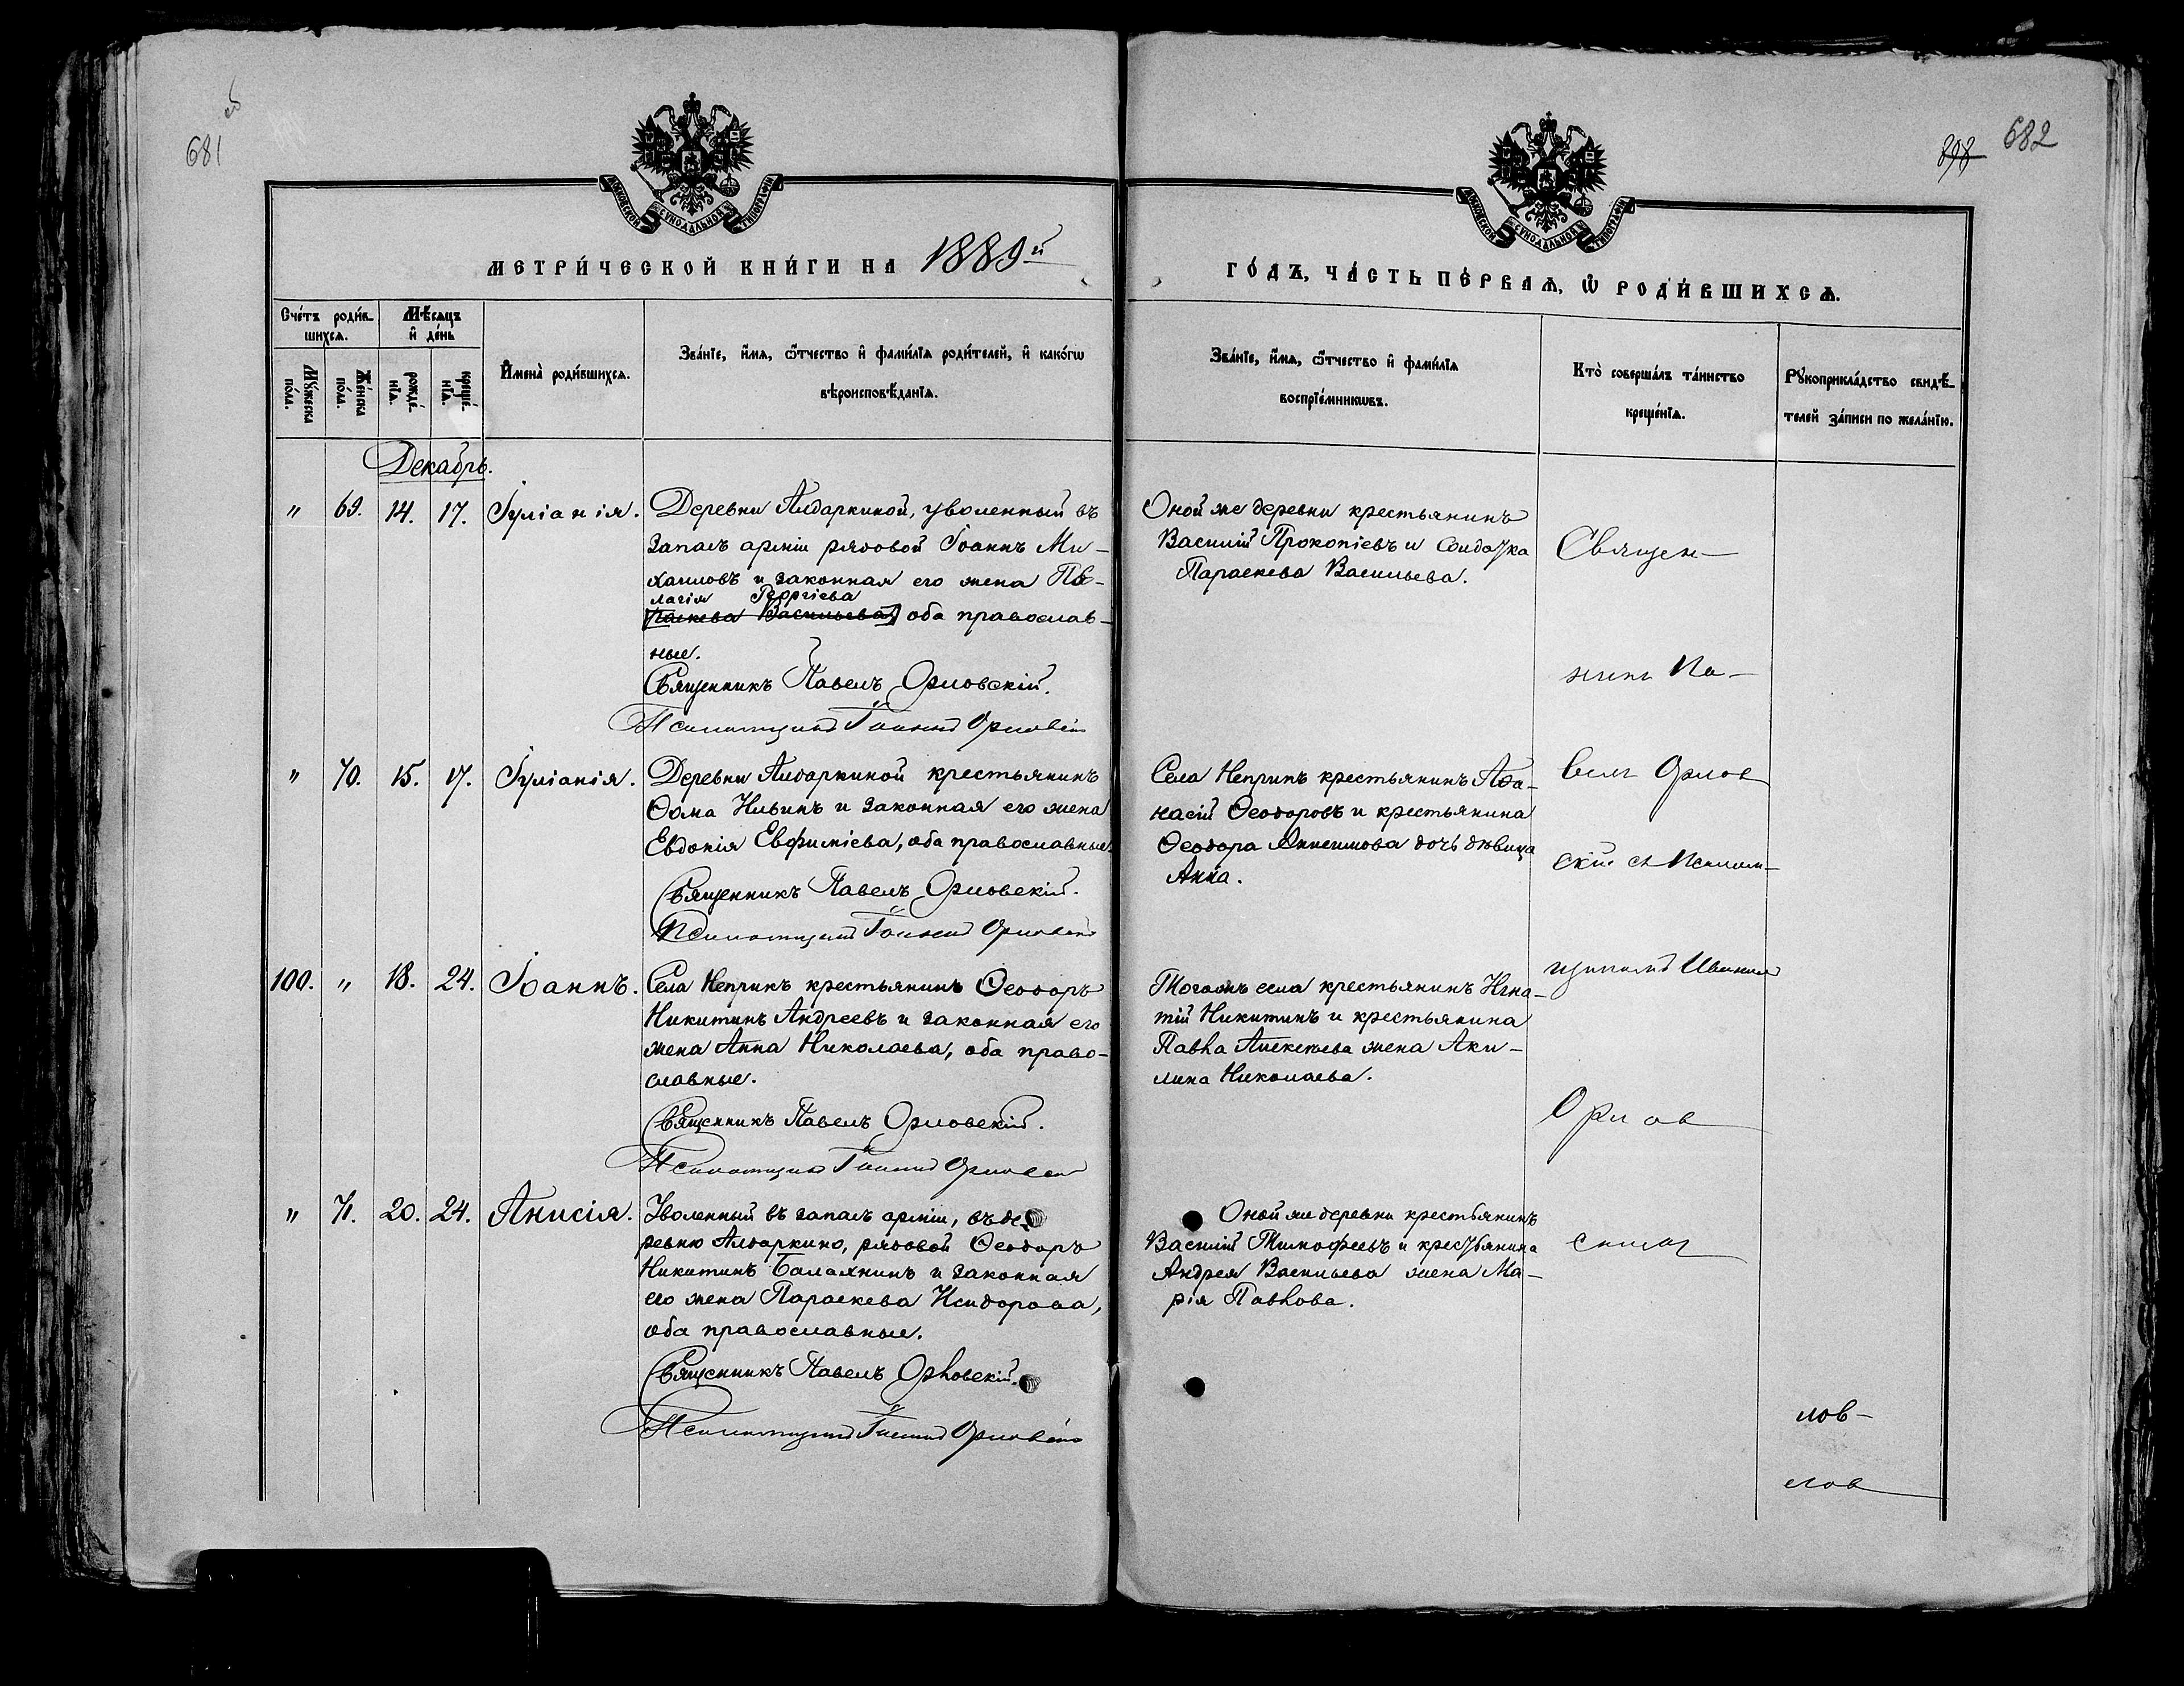 681
682
МОСКОВСКОЙ СѴНОДАЛЬНОЙ ТИПОГРАФІИ
МОСКОВСКОЙ СѴНОДАЛЬНОЙ ТИПОГРАФІИ
МЕТРИ́ЧЕСКОЙ КНИ́ГИ НА 1889й
ГО́ДЪ, ЧА́СТЬ ПЕ́РВАѦ, Ѡ РОДИ́ВШИХСѦ.
Сче́тъ роди́в-
шихсѧ.
Мꙋ́жеска по́ла.
Же́нска по́ла.
Мѣ́сѧцъ
и҆ де́нь
рожде́-
нїѧ.
креще́-
нїѧ.
И҆мена̀ роди́вшихсѧ.
Зва́нїе, и҆́мѧ, ѻ҆́тчество и҆ фами́лїѧ роди́телей, и҆ како́гѡ
вѣроисповѣ́данїѧ.
Зва́нїе, и҆́мѧ, ѻ҆́тчество и҆ фами́лїѧ
воспрїе́мникѡвъ.
Кто̀ соверша́лъ та́инство
креще́нїѧ.
Рꙋкоприкла́дство свидѣ́-
телей за́писи по жела́нїю.
Декабрь.
" 69. 14. 17. Іуліанія.
Деревни Алдаркиной, уволенный въ
запасъ арміи рядовой Іоаннъ Ми-
хаиловъ и законная его жена Пе-
лагія Георгіева
раскева Васильева оба православ-
ные.
Священникъ Павелъ Орловскій.
Псаломщикъ Іоаннъ Орловскій
Оной же деревни крестьянинъ
Василій Прокопіевъ и солдатка
Параскева Васильева.
" 70. 15. 17. Іуліанія.
Деревни Алдаркиной крестьянинъ
Ѳома Ильинъ и законная его жена
Евдокія Евфиміева, оба православные.
Священникъ Павелъ Орловскій.
Псаломщикъ Іоаннъ Орловскій
Села Неприкъ крестьянинъ Аѳа-
насій Ѳеодоровъ и крестьянина
Ѳеодора Анисимова дочь дѣвица
Анна.
100. " 18. 24. Іоаннъ.
Села Неприкъ крестьянинъ Ѳеодоръ
Никитинъ Андреевъ и законная его
жена Анна Николаева, оба право-
славные.
Священникъ Павелъ Орловскій.
Псаломщикъ Іоаннъ Орловскій
Тогожъ села крестьянинъ Игна-
тій Никитинъ и крестьянина
Павла Алексѣева жена Аки-
лина Николаева.
" 71. 20. 24. Анисія.
Уволенный въ запасъ арміи, въ де-
ревню Алдаркино, рядовой Ѳеодоръ
Никитинъ Балахнинъ и законная
его жена Параскева Исидорова,
оба православные.
Священникъ Павелъ Орловскій.
Псаломщикъ Іоаннъ Орловскій
Оной же деревни крестьянинъ
Василій Тимофеевъ и крестьянина
Андрея Васильева жена Ма-
рія Павлова.
Священ-
никъ Па-
велъ Орлов
скій съ Псалом-
щикомъ Иваномъ
Орлов
скимъ
лов-
лов